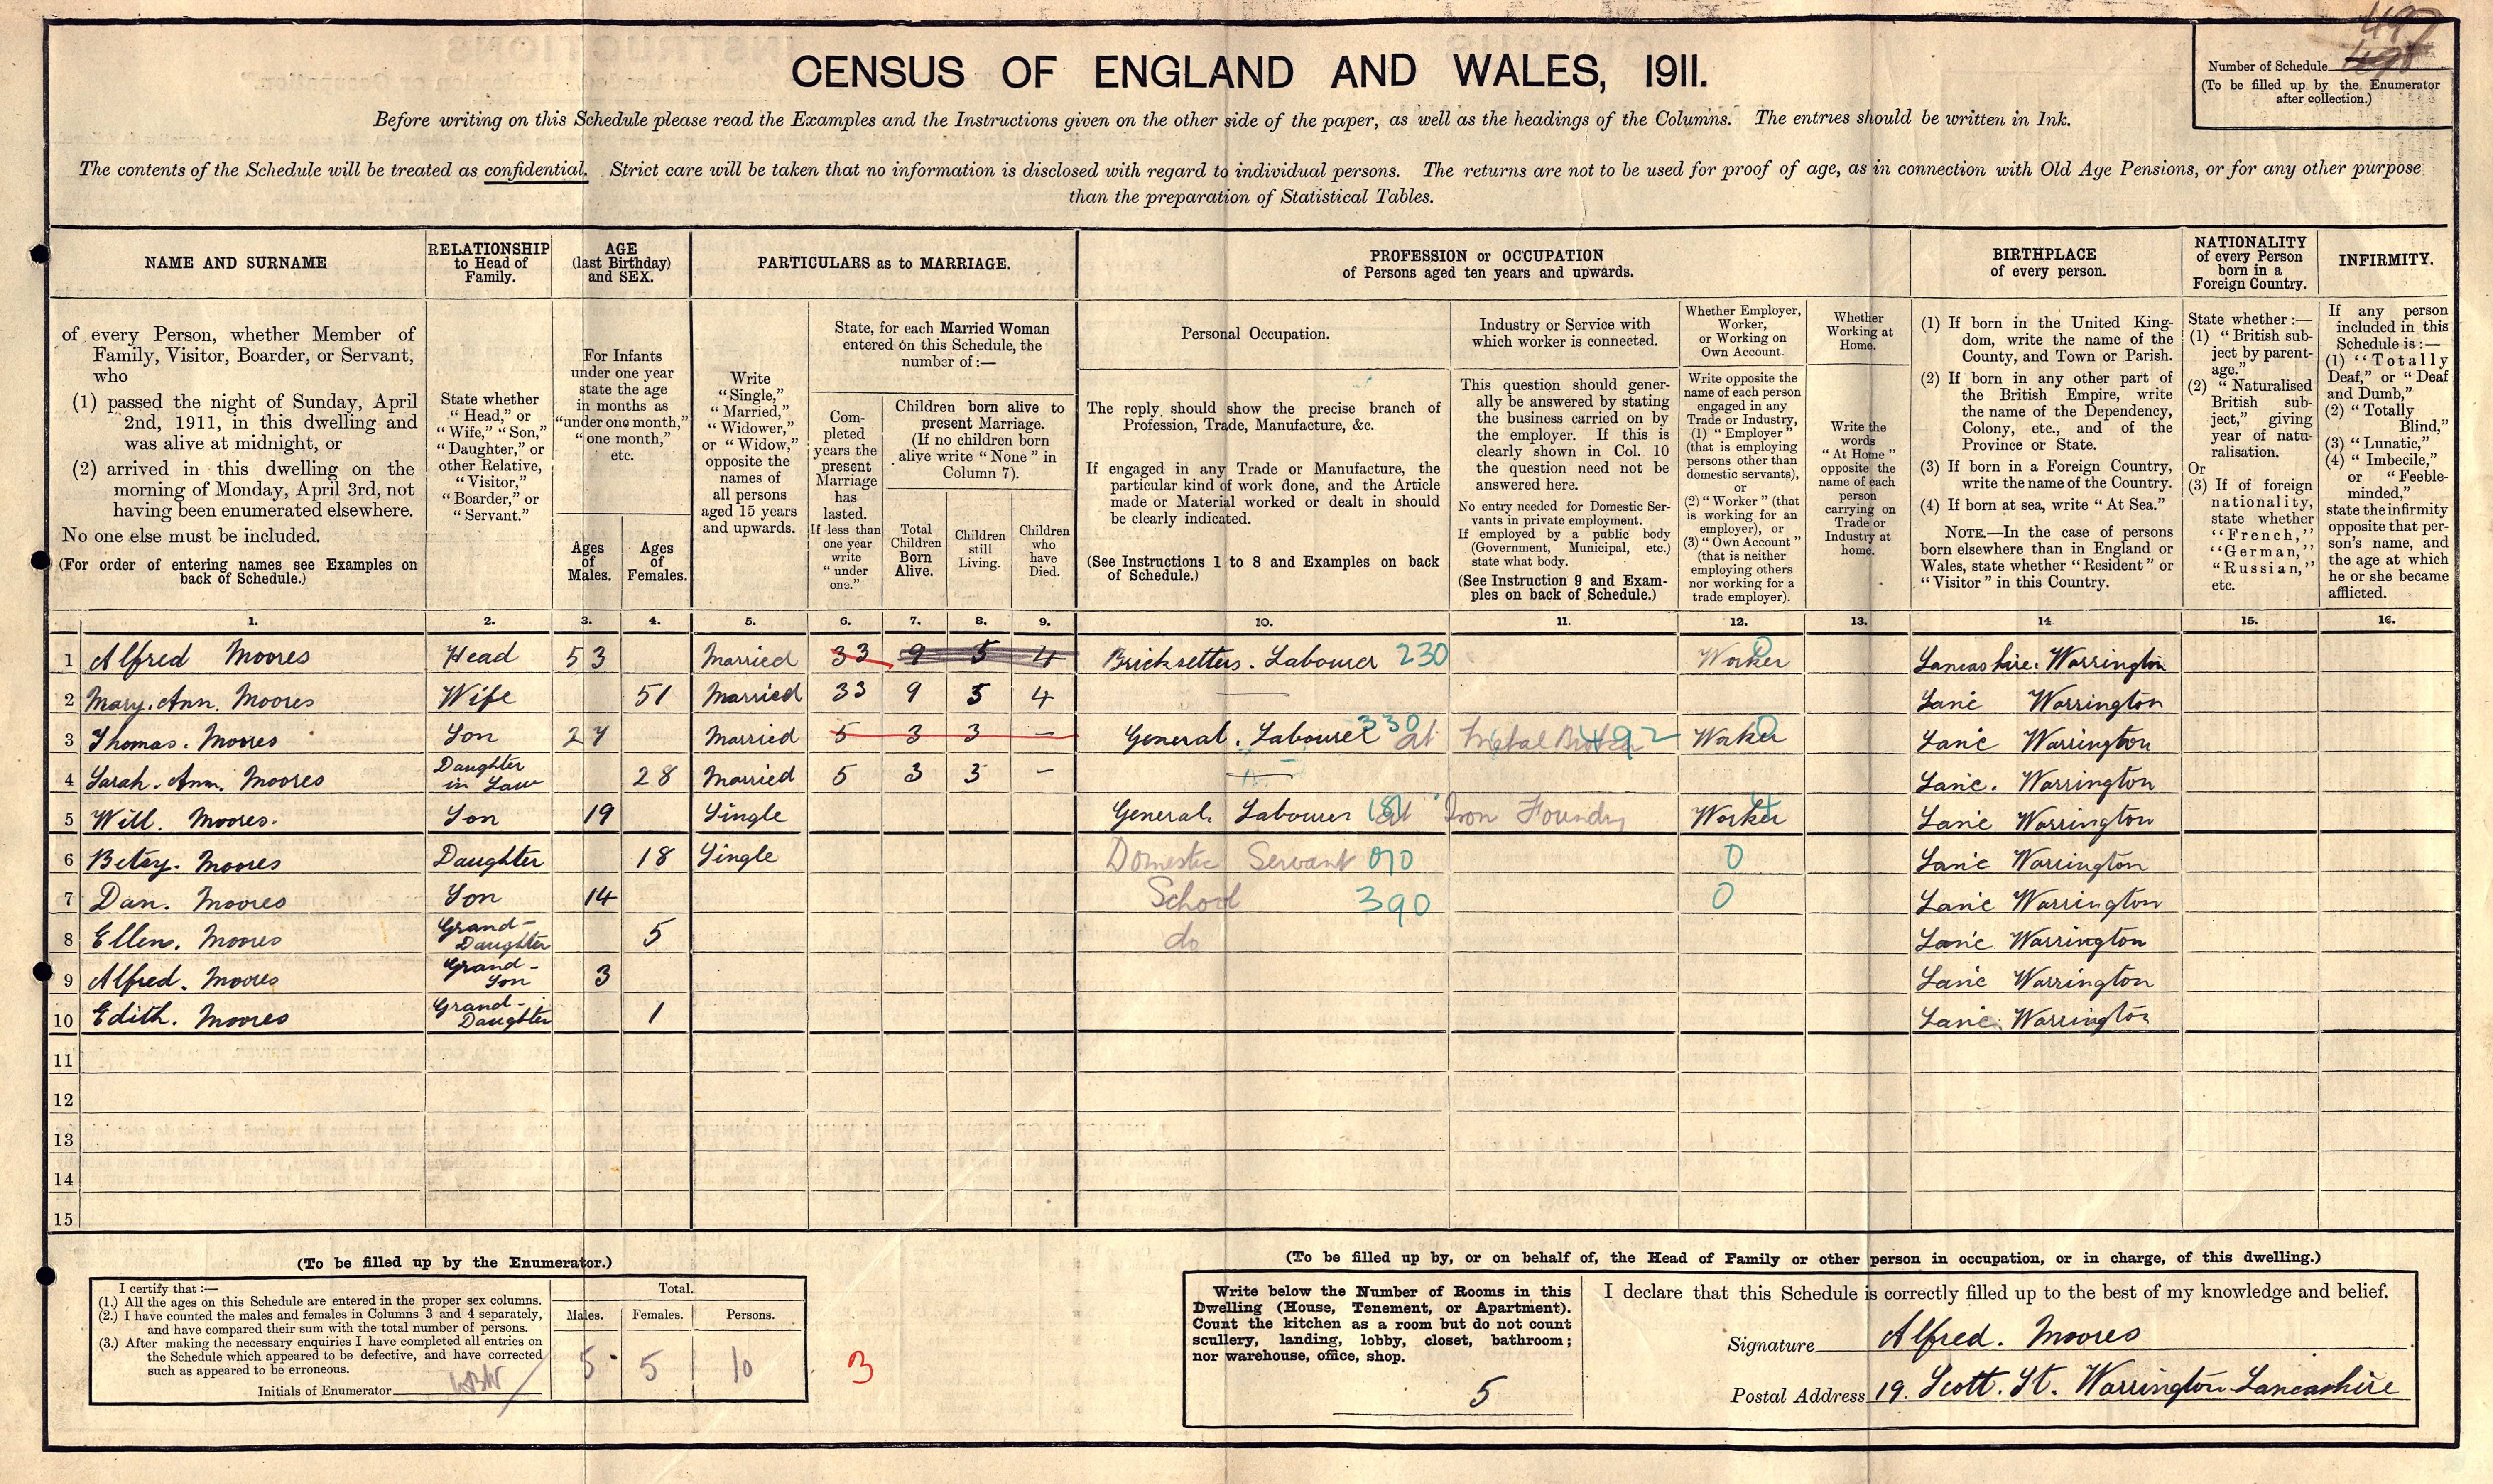 497
498
CENSUS OF ENGLAND AND WALES, 1911.
Number of Schedule
(To be filled up by the Enumerator
after collection.)
Before writing on this Schedule please read the Examples and the Instructions given on the other side of the paper, as well as the headings of the Columns. The entries should be written in Ink.
The contents of the Schedule will be treated as confidential. Strict care will be taken that no information is disclosed with regard to individual persons. The returns are not to be used for proof of age, as in connection with Old Age Pensions, or for any other purpose
than the preparation of Statistical Tables.
NAME AND SURNAME
of every Person, whether Member of
Family, Visitor, Boarder, or Servant,
who
(1) passed the night of Sunday, April
2nd, 1911, in this dwelling and
was alive at midnight, or
(2) arrived in this dwelling on the
morning of Monday, April 3rd, not
having been enumerated elsewhere.
No one else must be included.
(For order of entering names see Examples on
back of Schedule.)
RELATIONSHIP
to Head of
Family.
State whether
"Head," or
"Wife," "Son,"
"Daughter," or
other Relative,
"Visitor,"
"Boarder," or
"Servant."
AGE
(last Birthday)
and SEX.
For Infants
under one year
state the age
in months as
"under one month,"
"one month,"
etc.
Ages
of
Males.
Ages
of
Females.
PARTICULARS as to MARRIAGE.
Write
"Single,"
"Married,"
"Widower,"
or "Widow,"
opposite the
names of
all persons
aged 15 years
and upwards.
State, for each Married Woman
entered on this Schedule, the
number of :—
Com-
pleted
years the
present
Marriage
has
lasted.
If less than
one year
write
"under
one."
Children born alive to
present Marriage.
(If no children born
alive write "None" in
Column 7).
Total
Children
Born
Alive.
Children
still
Living.
Children
who
have
Died.
PROFESSION or OCCUPATION
of Persons aged ten years and upwards.
Personal Occupation.
The reply should show the precise branch of
Profession, Trade, Manufacture, &c.
If engaged in any Trade or Manufacture, the
particular kind of work done, and the Article
made or Material worked or dealt in should
be clearly indicated.
(See Instructions 1 to 8 and Examples on back
of Schedule.)
Industry or Service with
which worker is connected.
This question should gener-
ally be answered by stating
the business carried on by
the employer. If this is
clearly shown in Col. 10
the question need not be
answered here.
No entry needed for Domestic Ser-
vants in private employment.
If employed by a public body
(Government, Municipal, etc.)
state what body.
(See Instruction 9 and Exam-
ples on back of Schedule.)
Whether Employer,
Worker,
or Working on
Own Account.
Write opposite the
name of each person
engaged in any
Trade or Industry,
(1) "Employer"
(that is employing
persons other than
domestic servants),
or
(2) "Worker" (that
is working for an
employer), or
(3) "Own Account"
(that is neither
employing others
nor working for a
trade employer).
Whether
Working at
Home.
Write the
words
"At Home"
opposite the
name of each
person
carrying on
Trade or
Industry at
home.
BIRTHPLACE
of every person.
(1) If born in the United King-
dom, write the name of the
County, and Town or Parish.
(2) If born in any other part of
the British Empire, write
the name of the Dependency,
Colony, etc., and of the
Province or State.
(3) If born in a Foreign Country,
write the name of the Country.
(4) If born at sea, write "At Sea."
NOTE.—In the case of persons
born elsewhere than in England or
Wales, state whether "Resident" or
"Visitor" in this Country.
NATIONALITY
of every Person
born in a
Foreign Country.
State whether :—
(1) "British sub-
ject by parent-
age."
(2) "Naturalised
British sub-
ject," giving
year of natu-
ralisation.
Or
(3) If of foreign
nationality,
state whether
"French,"
"German,"
"Russian,"
etc.
INFIRMITY.
If any person
included in this
Schedule is :—
(1) "Totally
Deaf," or "Deaf
and Dumb,"
(2) "Totally
Blind,"
(3) "Lunatic,"
(4) "Imbecile,"
or "Feeble-
minded,"
state the infirmity
opposite that per-
son's name, and
the age at which
he or she became
afflicted.
1. 2. 3. 4. 5. 6. 7. 8. 9. 10. 11. 12. 13. 14. 15. 16.
1 Alfred Moores Head 53 Married 33 9 5 4 Bricksetters. Labourer 230 Worker 0 Lancashire. Warrington
2 Mary. Ann. Moores Wife 51 Married 33 9 5 4 — Lanc Warrington
3 Thomas. Moores Son 27 Married 5 3 3 — General. Labourer 330 at Metal 492 Worker 0 Lanc Warrington
4 Sarah. Ann. Moores Daughter in Law 28 Married 5 3 3 — — Lanc. Warrington
5 Will. Moores. Son 19 Single General. Labourer at Iron Foundry Worker Lanc Warrington
6 Betsy. Moores Daughter 18 Single Domestic Servant 070 0 Lanc Warrington
7 Dan. Moores Son 14 School 390 0 Lanc Warrington
8 Ellen. Moores Grand-Daughter 5 do Lanc Warrington
9 Alfred. Moores Grand-Son 3 Lanc Warrington
10 Edith. Moores Grand-Daughter 1 Lanc. Warrington
11
12
13
14
15
(To be filled up by the Enumerator.)
I certify that :—
(1.) All the ages on this Schedule are entered in the proper sex columns.
(2.) I have counted the males and females in Columns 3 and 4 separately,
and have compared their sum with the total number of persons.
(3.) After making the necessary enquiries I have completed all entries on
the Schedule which appeared to be defective, and have corrected
such as appeared to be erroneous.
Initials of Enumerator
Total.
Males. Females. Persons.
5 5 10
3
(To be filled up by, or on behalf of, the Head of Family or other person in occupation, or in charge, of this dwelling.)
Write below the Number of Rooms in this
Dwelling (House, Tenement, or Apartment).
Count the kitchen as a room but do not count
scullery, landing, lobby, closet, bathroom;
nor warehouse, office, shop.
5
I declare that this Schedule is correctly filled up to the best of my knowledge and belief.
Signature Alfred. Moores
Postal Address 19. Scott. St. Warrington. Lancashire